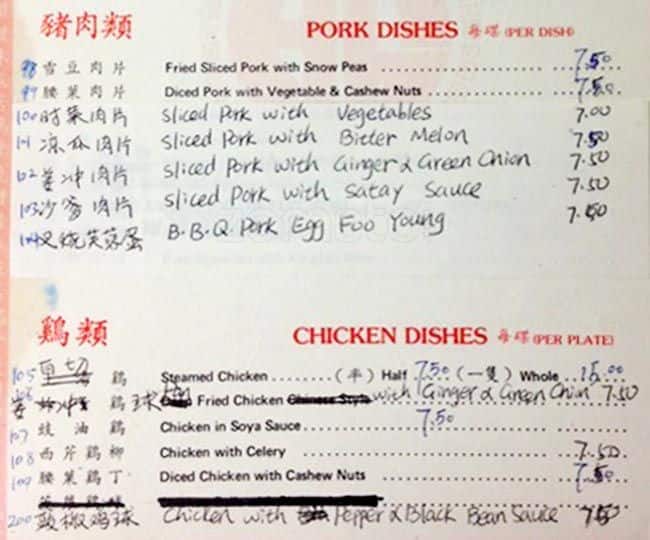 豬肉類 PORK DISHES 每碟 (PER DISH)
98 雪豆肉片 Fried Sliced Pork with Snow Peas 7.50
99 腰菓肉片 Diced Pork with Vegetable & Cashew Nuts 7.50
100 时菜肉片 Sliced Pork with Vegetables 7.00
101 凉瓜肉片 Sliced Pork with Bitter Melon 7.50
102 姜冲肉片 Sliced Pork with Ginger & Green Onion 7.50
103 沙爹肉片 Sliced Pork with Satay Sauce 7.50
104 叉烧芙蓉蛋 B.B.Q. Pork Egg Foo Young 7.50
鷄類 CHICKEN DISHES 每碟 (PER PLATE)
105 切鷄 Steamed Chicken (半) Half 7.50 (一隻) Whole 15.00
106 姜冲鷄球 Fried Chicken Chinese Style with Ginger & Green Onion 7.50
107 豉油鷄 Chicken in Soya Sauce 7.50
108 西芹鷄柳 Chicken with Celery 7.50
109 腰菓鷄丁 Diced Chicken with Cashew Nuts 7.50
200 豉椒鸡球 Chicken with Pepper & Black Bean Sauce 7.50